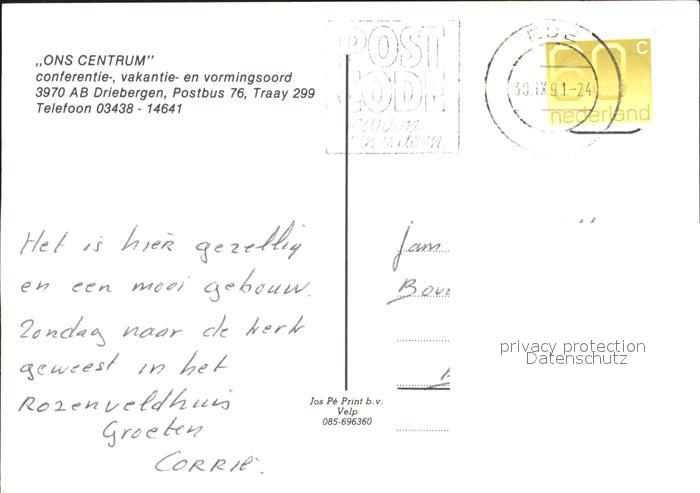 „ONS CENTRUM”
conferentie-, vakantie- en vormingsoord
3970 AB Driebergen, Postbus 76, Traay 299
Telefoon 03438 - 14641
POST
CODE
gewoon
EDE
30.IX.91-24
60 c
nederland
Het is hier gezellig
en een mooi gebouw.
Zondag naar de kerk
geweest in het
Rozenveldhuis
Groeten
CORRIE.
Jos Pé Print b.v.
Velp
085-696360
fam
privacy protection
Datenschutz